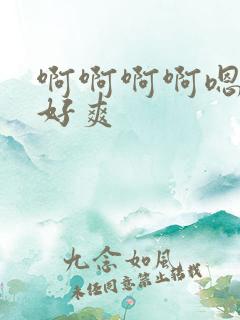 啊啊啊啊嗯
好爽
九念如风
未经同意禁止转载